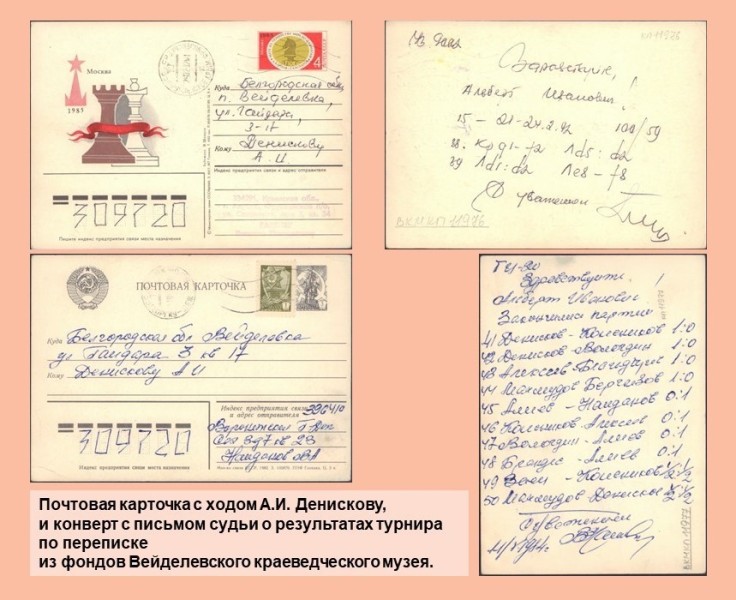 Москва
1987
Куда Белгородская обл,
п. Вейделевка,
ул. Гайдара,
3-17
Кому Денискову
А. И.
Индекс предприятия связи и адрес отправителя
309720
Пишите индекс предприятия связи места назначения
Здравствуйте,
Альберт Иванович!
15 - 21-24.2.92 100/59
28. Крg1-f2 Лd5:d2
29 Лd1:d2 Ле8-f8
С уважением
ВКМ КП 11976
ПОЧТОВАЯ КАРТОЧКА
Куда Белгородская обл Вейделевка
ул Гайдара 3 кв 17
Кому Денискову А И
Индекс предприятия связи
и адрес отправителя 396410
Воронежская
кв 23
Найданов
309720
Индекс предприятия связи места назначения
Здравствуйте
Альберт Иванович!
Закончились партии
41 Денисков - Колесников 1:0
42 Денисков - Вологдин 1:0
43 Алексеев 1:0
44 Махмудов 1:0
45 Алиев - Найданов 0:1
46 0:1
47 Вологдин - Алиев 0:1
48 Брандис - Алиев 0:1
49 - Колесников ½ ½
50 Махмудов Денисков ½ ½
С уважением
ВКМ КП 11977
Почтовая карточка с ходом А.И. Денискову,
и конверт с письмом судьи о результатах турнира
по переписке
из фондов Вейделевского краеведческого музея.